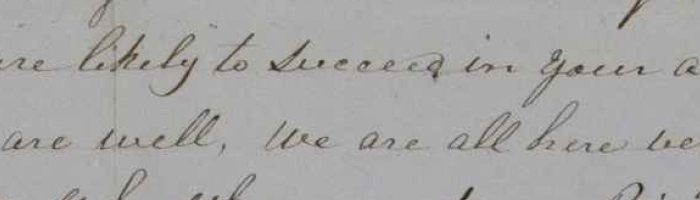 likely to succeed in your
are well, We are all here